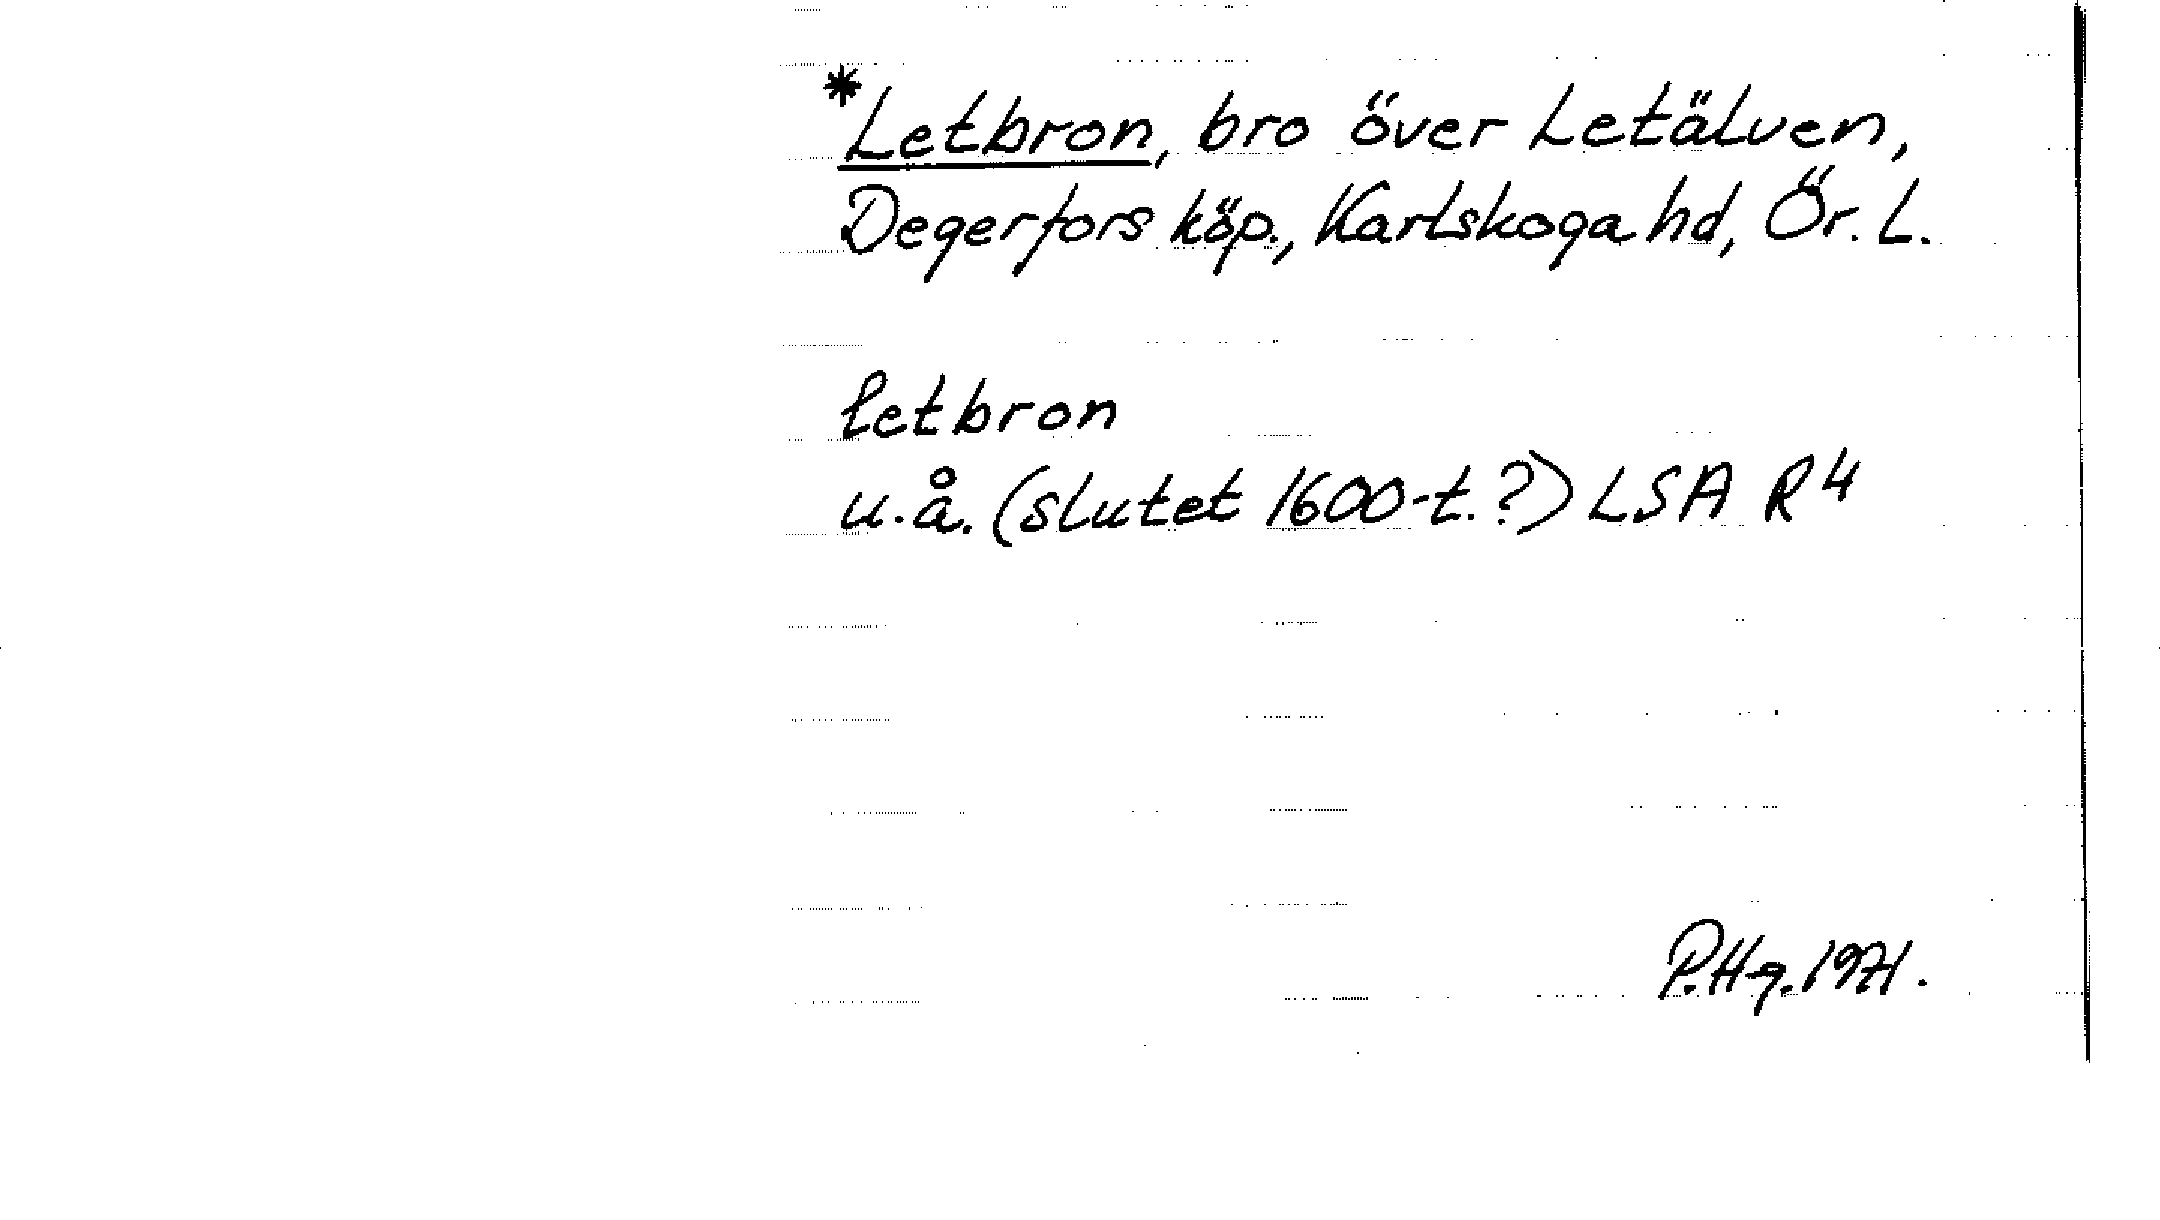 *Letbron, bro över Letälven,
Degerfors köp., Karlskoga hd, Ör. L.
letbron
u.å. (slutet 1600-t.?) LSA R4
P.Hg. 1971.